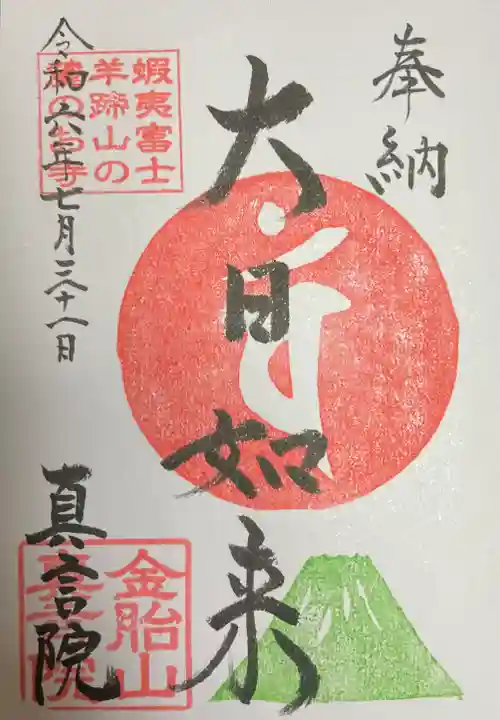 奉納
大日如来
蝦夷富士
羊蹄山の
令和六年七月三十一日
真言院
金胎山